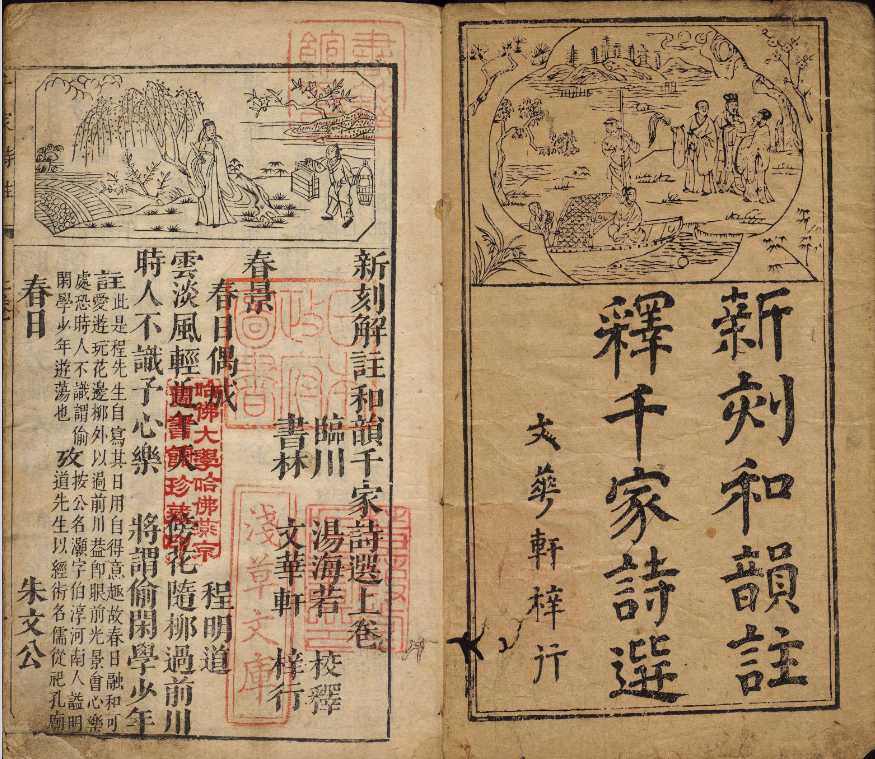 新刻和韻註
釋千家詩選
文華軒梓行
新刻解註和韻千家詩選上卷
臨川 湯海若 校釋
書林 文華軒 梓行
春景
春日偶成 程明道
雲淡風輕近午天 傍花隨柳過前川
時人不識予心樂 將謂偷閑學少年
註此是程先生自寫其日用自得意趣故春日融和可
愛遊玩花邊柳外以過前川益即眼前光景會心樂
處恐時人不識謂偷
閑學少年遊蕩也
攷按公名灝字伯淳河南人謚明
道先生以經術名儒從祀孔廟
春日 朱文公
淺草文庫
哈佛大學哈佛燕京
圖書館珍藏印